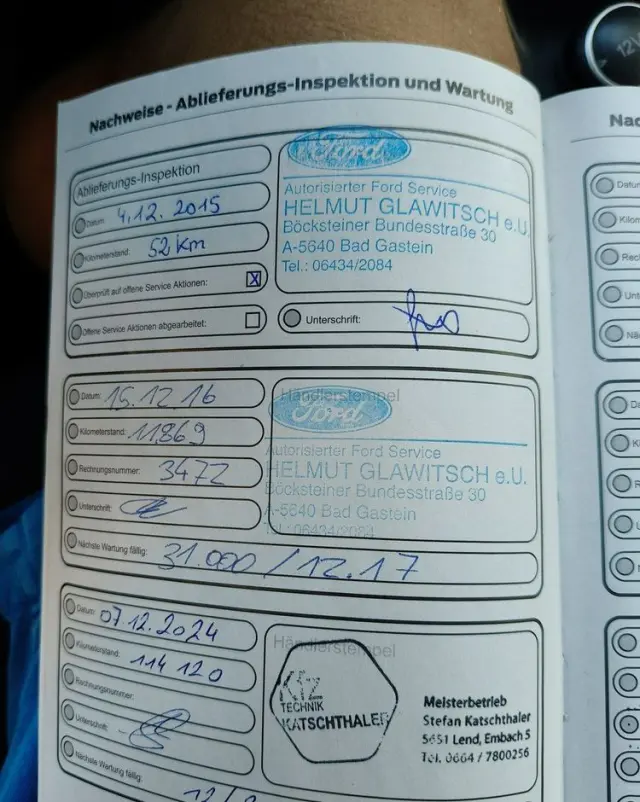 Nachweise - Ablieferungs-Inspektion und Wartung
Ablieferungs-Inspektion
Datum: 4.12.2015
Kilometerstand: 52 km
Überprüft auf offene Service Aktionen: X
Offene Service Aktionen abgearbeitet:
Ford
Autorisierter Ford Service
HELMUT GLAWITSCH e.U.
Böcksteiner Bundesstraße 30
A-5640 Bad Gastein
Tel.: 06434/2084
Unterschrift:
Datum: 15.12.16
Kilometerstand: 11.869
Rechnungsnummer: 3472
Unterschrift:
Nächste Wartung fällig: 31.000 / 12.17
Händlerstempel
Ford
Autorisierter Ford Service
HELMUT GLAWITSCH e.U.
Böcksteiner Bundesstraße 30
A-5640 Bad Gastein
Tel.: 06434/2084
Datum: 07.12.2024
Kilometerstand: 114 120
Rechnungsnummer:
Unterschrift:
Nächste Wartung fällig:
Händlerstempel
Kfz
TECHNIK
KATSCHTHALER
Meisterbetrieb
Stefan Katschthaler
5651 Lend, Embach 5
Tel. 0664 / 7800256
12V